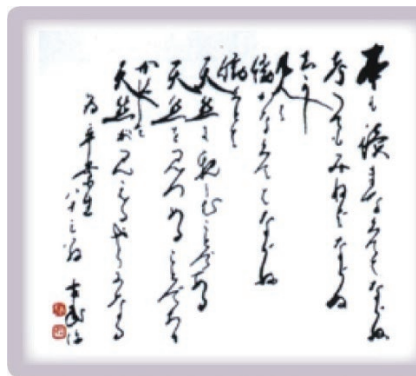 本も讀まなくてはならぬ
考へてもみねばならぬ
しかし
凡人は
働かなくてはならぬ
働くとは
天然に親しむことである
天然を見つめることである
かくして
天然が見えるやうになる
為卒業生 古武